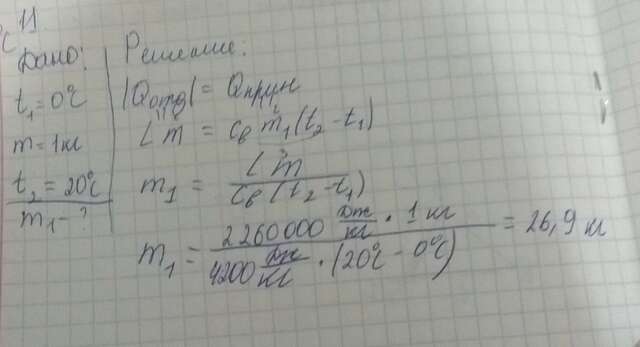 11
Дано:
t₁=0°C
m=1кг
t₂=20°C
m₁-?
Решение:
|Qотд|=Qприн
Lm = cв m₁(t₂-t₁)
m₁ = Lm / cв(t₂-t₁)
m₁ = 2260000 Дж/кг · 1 кг / 4200 Дж/кг · (20°C - 0°C) = 26,9 кг